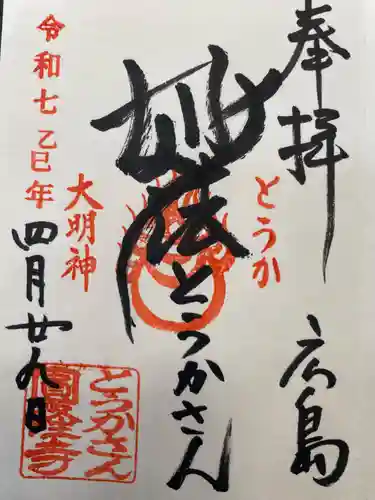 奉拝
広島
とうか
妙法
とうかさん
大明神
令和七乙巳年
四月廿九日
とうかさん
圓隆寺